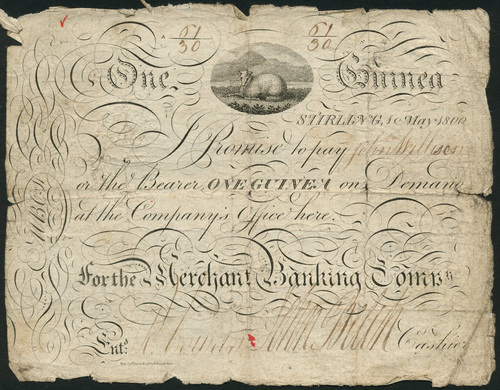 61/30 61/30
One Guinea
STIRLING, 1 May 1800
I Promise to pay John
or the Bearer ONE GUINEA on Demand
at the Company's Office here.
For the Merchant Banking Compy
Entd. Cashier